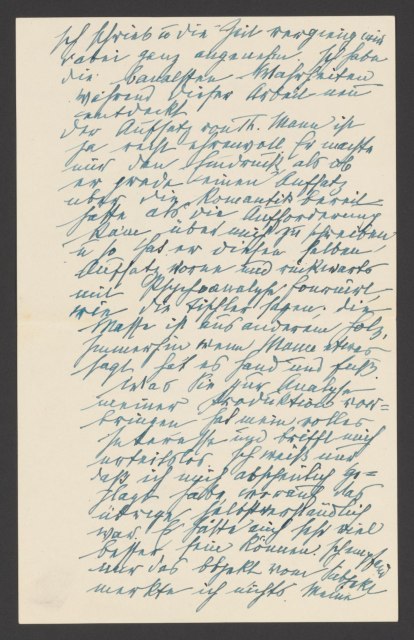 Ich schrieb u die Zeit vergieng mir
dabei ganz angenehm. Ich habe
die banalsten Wahrheiten
während dieser Arbeit neu
entdeckt
Der Aufsatz von Th. Mann ist
ja recht ehrenvoll. Er machte
mir den Eindruck als ob
er grade einen Aufsatz
über die Romantik bereit-
hatte als die Aufforderung
kam über mich zu schreiben
u so hat er diesen selben
Aufsatz vorne und rückwärts
mit Psychoanalyse fourniert,
wie die Tischler sagen: die
Masse ist aus anderem Holz.
Immerhin wenn Mann etwas
sagt hat es Hand und Fuß
Was Sie zur Analyse
meiner Produktion vor-
bringen hat mein volles
Interesse und trifft mich
urteilslos. Ich weiß nur
daß ich mich abscheulich ge-
plagt habe, woraus das
übrige selbstverständlich
war. Es hätte auch sehr viel
besser sein können.
nur das Objekt vom Subjekt
merkte ich nichts. Meine